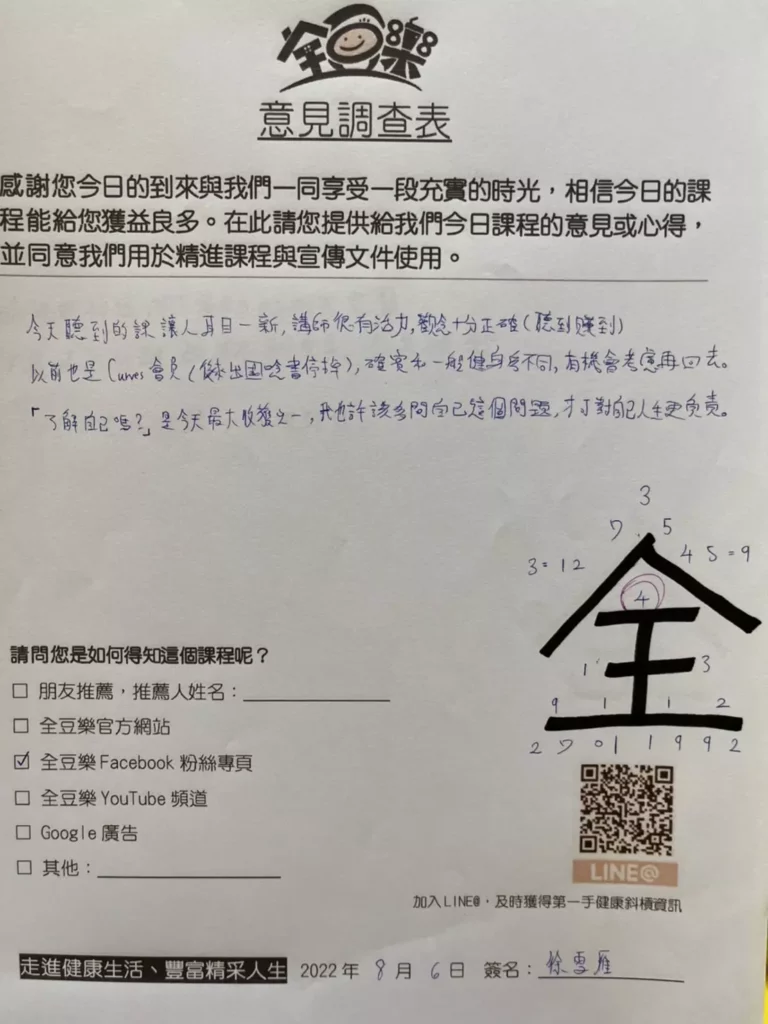 全豆樂
意見調查表
感謝您今日的到來與我們一同享受一段充實的時光，相信今日的課
程能給您獲益良多。在此請您提供給我們今日課程的意見或心得，
並同意我們用於精進課程與宣傳文件使用。
今天聽到的課讓人耳目一新,講師很有活力,觀念十分正確(聽到賺到)
以前也是Curves會員(後來出國唸書停掉),確實和一般健身房不同,有機會考慮再回去。
「了解自己嗎?」是今天最大收穫之一,我也許該多問自己這個問題,才對自己人生更負責。
3
7 . 5
3=12 4 5=9
4
全
1 3
9 1 1 2
2 7 0 1 1 9 9 2
請問您是如何得知這個課程呢？
☐ 朋友推薦，推薦人姓名：
☐ 全豆樂官方網站
☑ 全豆樂Facebook 粉絲專頁
☐ 全豆樂YouTube 頻道
☐ Google 廣告
☐ 其他：
LINE@
加入LINE@，及時獲得第一手健康斜槓資訊
走進健康生活、豐富精采人生 2022年 8月 6日 簽名：徐雪雁